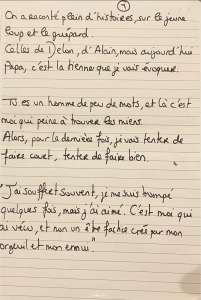 1
On a raconté plein d'histoires, sur le jeune
loup et le guépard.
Celles de Delon, d'Alain, mais aujourd'hui
Papa, c'est la tienne que je vais évoquer.
Tu es un homme de peu de mots, et là c'est
moi qui peine à trouver les miens.
Alors, pour la dernière fois, je vais tenter de
faire court, tenter de faire bien.
"J'ai souffert souvent, je me suis trompé
quelques fois, mais j'ai aimé. C'est moi qui
ai vécu, et non un être factice créé par mon
orgueil et mon ennui"